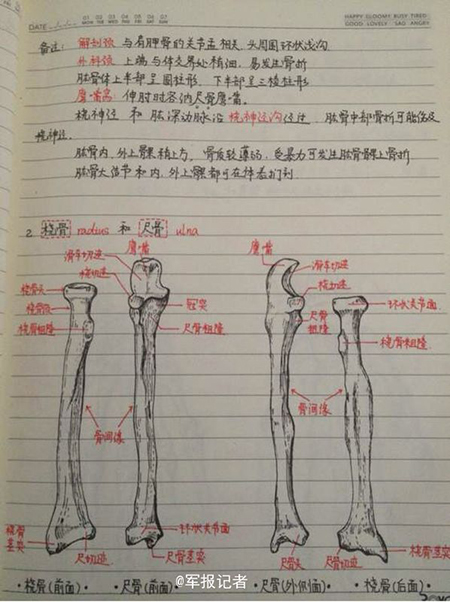 DATE
01 02 03 04 05 06 07
MON TUE WED THU FRI SAT SUN
HAPPY GLOOMY BUSY TIRED
GOOD LOVELY SAD ANGRY
备注: 解剖颈 与有肱骨的关节盂相关, 头周围环状浅沟
外科颈 上端与体交界处稍细, 易发生骨折
肱骨体上半部呈圆柱形, 下半部呈三棱柱形
鹰嘴窝 伸肘时容纳尺骨鹰嘴.
桡神经 和 肱深动脉沿 桡神经沟经过, 肱骨中部骨折可能伤及
桡神经.
肱骨内、外上髁稍上方, 骨质较薄弱, 受暴力可发生肱骨髁上骨折
肱骨大结节和内、外上髁都可在体表扪到.
2. 桡骨 radius 和 尺骨 ulna
鹰嘴
鹰嘴
滑车切迹
滑车切迹
桡切迹
桡切迹
桡骨头
桡骨颈
桡骨粗隆
冠突
尺骨粗隆
尺骨粗隆
环状关节面
桡骨粗隆
骨间缘
骨间缘
桡骨茎突
尺切迹
环状关节面
尺骨茎突
尺骨头
尺骨切迹
桡骨茎突
·桡骨(前面)· ·尺骨(前面)· ·尺骨(外侧面) 桡骨(后面)·
@军报记者